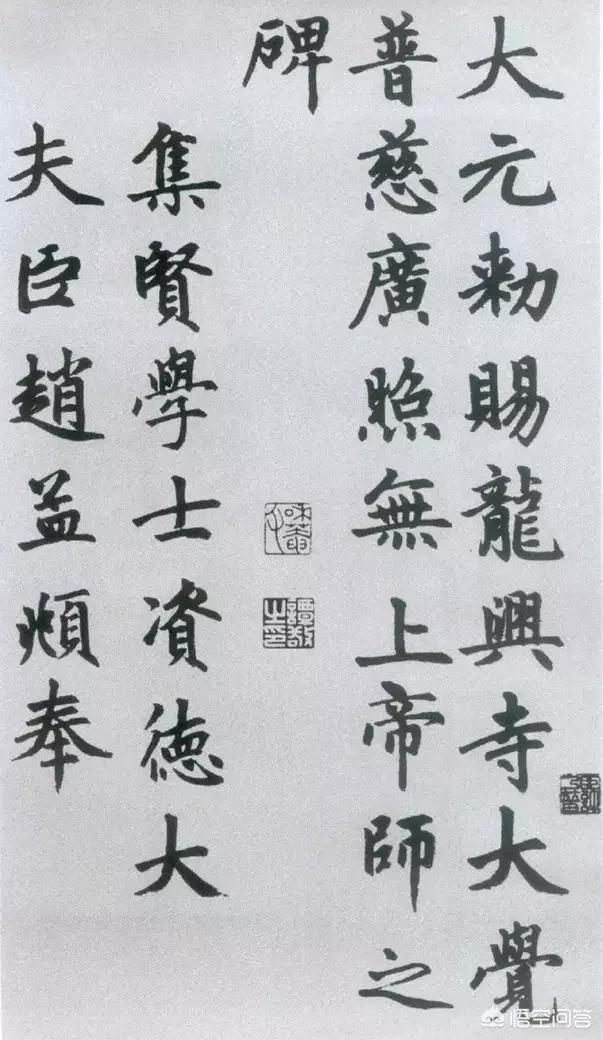 大元勅賜龍興寺大覺
普慈廣照無上帝師之
碑
集賢學士資德大
夫臣趙孟頫奉
悟空问答